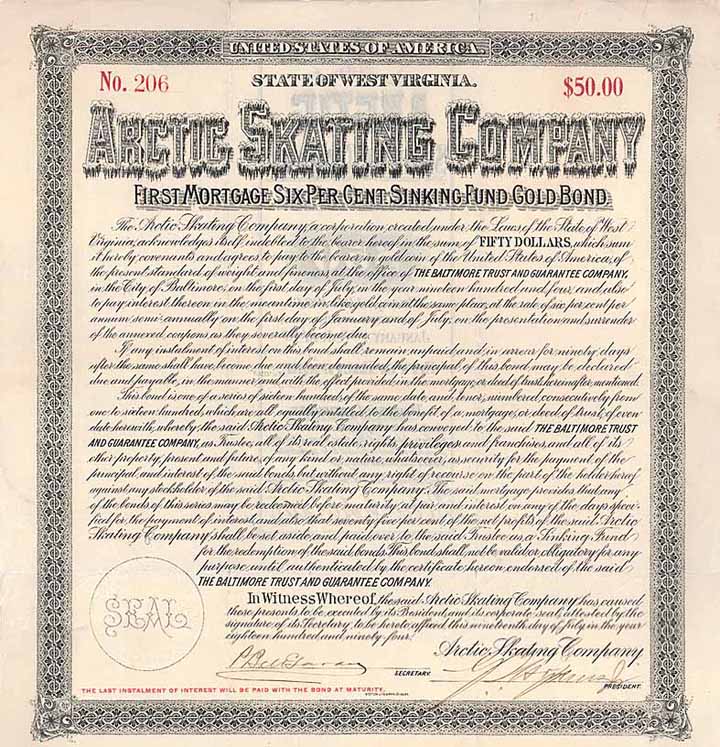 UNITED STATES OF AMERICA.
No. 206
STATE OF WEST VIRGINIA.
$50.00
ARCTIC SKATING COMPANY
FIRST MORTGAGE SIX PER CENT. SINKING FUND GOLD BOND
The Arctic Skating Company, a corporation created under the Laws of the State of West
Virginia, acknowledges itself indebted to the bearer hereof in the sum of FIFTY DOLLARS, which sum
it hereby covenants and agrees to pay to the bearer, in gold coin of the United States of America, of
the present standard of weight and fineness, at the office of THE BALTIMORE TRUST AND GUARANTEE COMPANY,
in the City of Baltimore, on the first day of July, in the year nineteen hundred and four, and also
to pay interest thereon in the meantime, in like gold coin at the same place, at the rate of six per cent per
annum semi-annually on the first day of January and of July, on the presentation and surrender
of the annexed coupons, as they severally become due.
If any instalment of interest on this bond shall remain unpaid and in arrear for ninety days
after the same shall have become due and been demanded, the principal of this bond may be declared
due and payable, in the manner and with the effect provided in the mortgage, or deed of trust, hereinafter mentioned.
This bond is one of a series of sixteen hundred, of the same date, and tenor, numbered consecutively from
one to sixteen hundred, which are all equally entitled to the benefit of a mortgage, or deed of trust, of even
date herewith, whereby the said Arctic Skating Company has conveyed to the said THE BALTIMORE TRUST
AND GUARANTEE COMPANY, as Trustee, all of its real estate, rights, privileges and franchises, and all of its
other property, present and future, of any kind or nature, whatsoever, as security for the payment of the
principal and interest of the said bonds but without any right of recourse on the part of the holder hereof
against any stockholder of the said Arctic Skating Company. The said mortgage provides that any
of the bonds of this series may be redeemed before maturity, at par and interest, on any of the days speci-
fied for the payment of interest, and also that seventy five per cent of the net profits of the said Arctic
Skating Company shall be set aside and paid over to the said Trustee as a Sinking Fund
for the redemption of the said bonds. This bond shall not be valid or obligatory for any
purpose until authenticated by the certificate hereon endorsed of the said
THE BALTIMORE TRUST AND GUARANTEE COMPANY.
In Witness Whereof, the said Arctic Skating Company has caused
these presents to be executed by its President, and its corporate seal, attested by the
signature of its Secretary, to be hereto affixed this nineteenth day of July in the year
eighteen hundred and ninety-four.
SEAL
Arctic Skating Company
SECRETARY.
PRESIDENT.
THE LAST INSTALMENT OF INTEREST WILL BE PAID WITH THE BOND AT MATURITY.